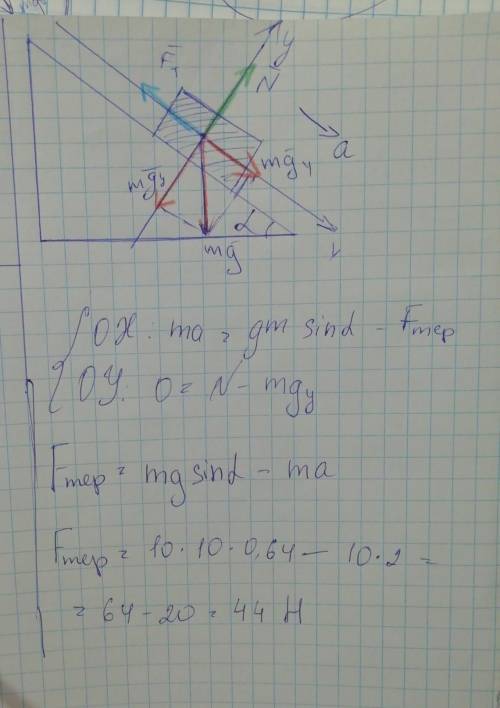 y
F̄т
N̄
a
mḡy
mḡy
α
mḡ
x
OX: ma = gm sinα - Fтер
OY: 0 = N - mgy
Fтер = mg sinα - ma
Fтер = 10·10·0,64 - 10·2 =
= 64 - 20 = 44 Н